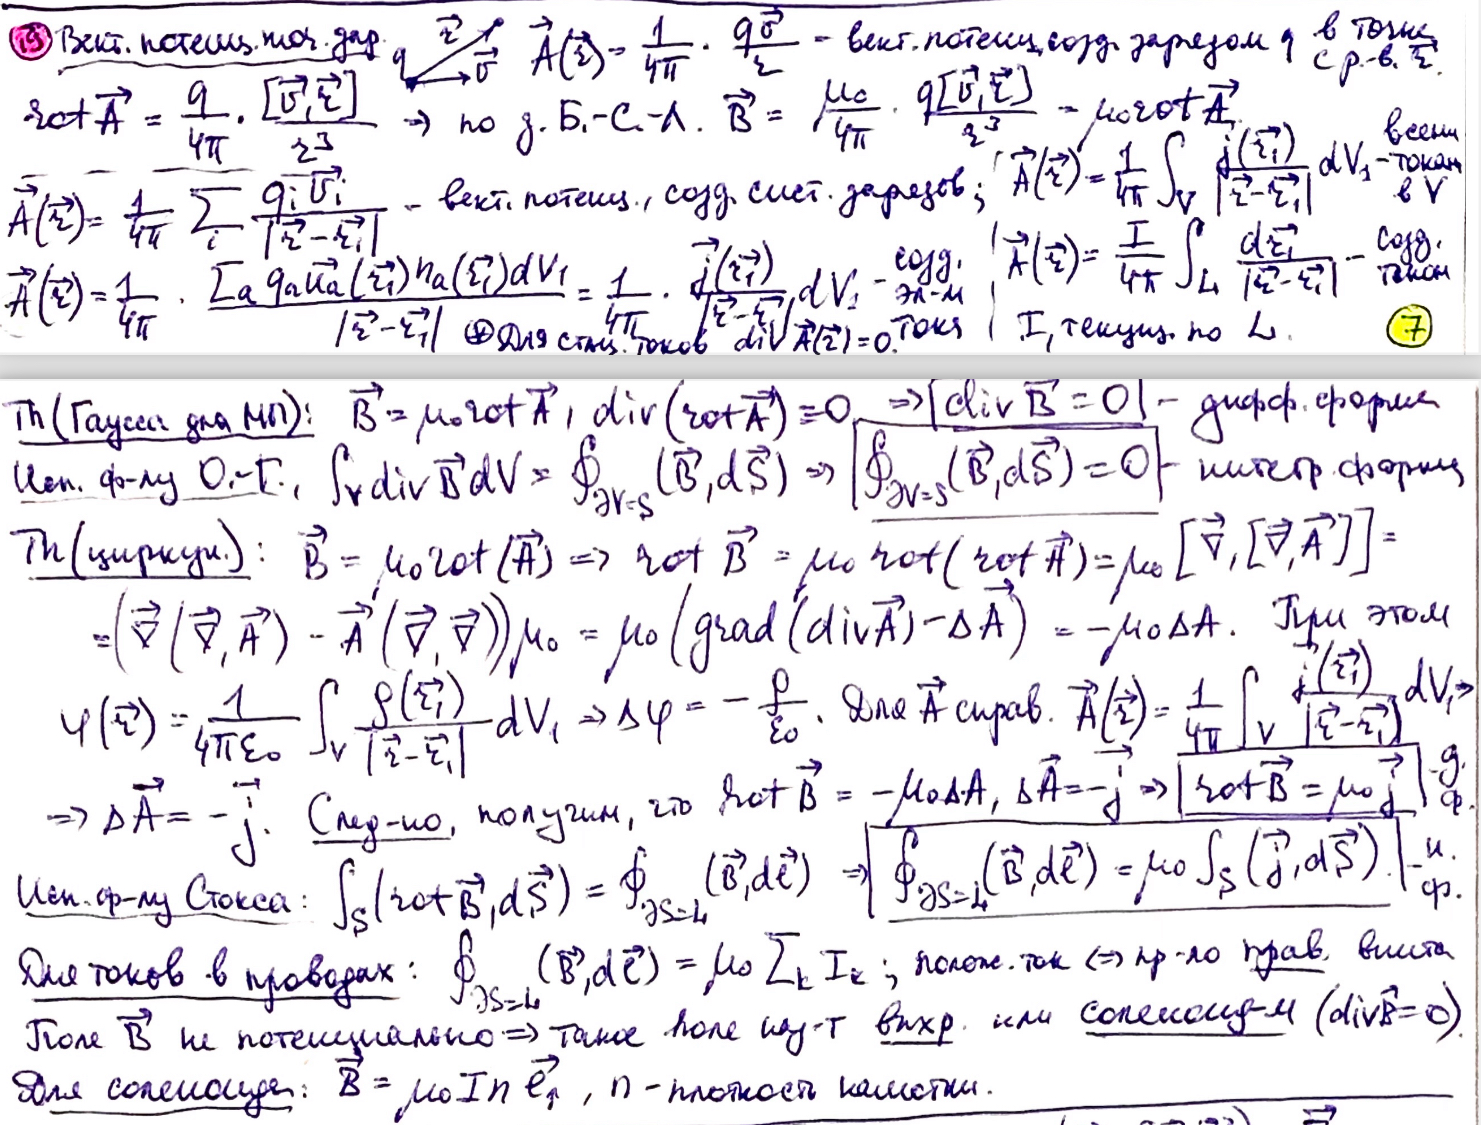 (13) Вект. потенц. точ. зар. q r⃗ v⃗ A⃗(r⃗) = 1/4π · qv⃗/r – вект. потенц. созд. зарядом q в точке с р.-в. r⃗.
rot A⃗ = q/4π · [v⃗, r⃗]/r³ ⇒ по з. Б.-С.-Л. B⃗ = μ₀/4π · q[v⃗, r⃗]/r³ = μ₀ rot A⃗.
A⃗(r⃗) = 1/4π ∑ᵢ qᵢv⃗ᵢ/|r⃗ – r⃗ᵢ| – вект. потенц., созд. сист. зарядов; A⃗(r⃗) = 1/4π ∫_V j⃗(r⃗₁)/|r⃗ – r⃗₁| dV₁ – всеми токами в V
A⃗(r⃗) = 1/4π · ∑ₐ qₐu⃗ₐ(r⃗₁)nₐ(r⃗₁)dV₁/|r⃗ – r⃗₁| = 1/4π · j⃗(r⃗₁)/|r⃗ – r⃗₁| dV₁ – созд. эл-м тока A⃗(r⃗) = I/4π ∫_L dr⃗₁/|r⃗ – r⃗₁| – созд. током
⊕ Для стац. токов div A⃗(r⃗) = 0. I, текущ. по L. (7)
Th (Гаусса для МП): B⃗ = μ₀ rot A⃗, div(rot A⃗) ≡ 0 ⇒ div B⃗ = 0 – дифф. форма
Исп. ф-лу О.-Г., ∫_V div B⃗ dV = ∮_∂V=S (B⃗, dS⃗) ⇒ ∮_∂V=S (B⃗, dS⃗) = 0 – интегр. форма
Th (циркул.): B⃗ = μ₀ rot(A⃗) ⇒ rot B⃗ = μ₀ rot(rot A⃗) = μ₀ [∇⃗, [∇⃗, A⃗]] =
= (∇⃗(∇⃗, A⃗) – A⃗(∇⃗, ∇⃗)) μ₀ = μ₀ (grad(div A⃗) – ΔA⃗) = –μ₀ΔA. При этом
φ(r⃗) = 1/4πε₀ ∫_V ρ(r⃗₁)/|r⃗ – r⃗₁| dV₁ ⇒ Δφ = –ρ/ε₀. Для A⃗ справ. A⃗(r⃗) = 1/4π ∫_V j⃗(r⃗₁)/|r⃗ – r⃗₁| dV₁ ⇒
⇒ ΔA⃗ = –j⃗. След-но, получим, что rot B⃗ = –μ₀ΔA, ΔA⃗ = –j⃗ ⇒ rot B⃗ = μ₀j⃗ – д. ф.
Исп. ф-лу Стокса: ∫_S (rot B⃗, dS⃗) = ∮_∂S=L (B⃗, dℓ⃗) ⇒ ∮_∂S=L (B⃗, dℓ⃗) = μ₀ ∫_S (j⃗, dS⃗). – и. ф.
Для токов в проводах: ∮_∂S=L (B⃗, dℓ⃗) = μ₀ ∑ₖ Iₖ; полож. ток ⇔ пр-ло прав. винта
Поле B⃗ не потенциально ⇒ такое поле наз-т вихр. или соленоид-м (div B⃗ = 0).
Для соленоида: B⃗ = μ₀In e⃗, n – плотность намотки.